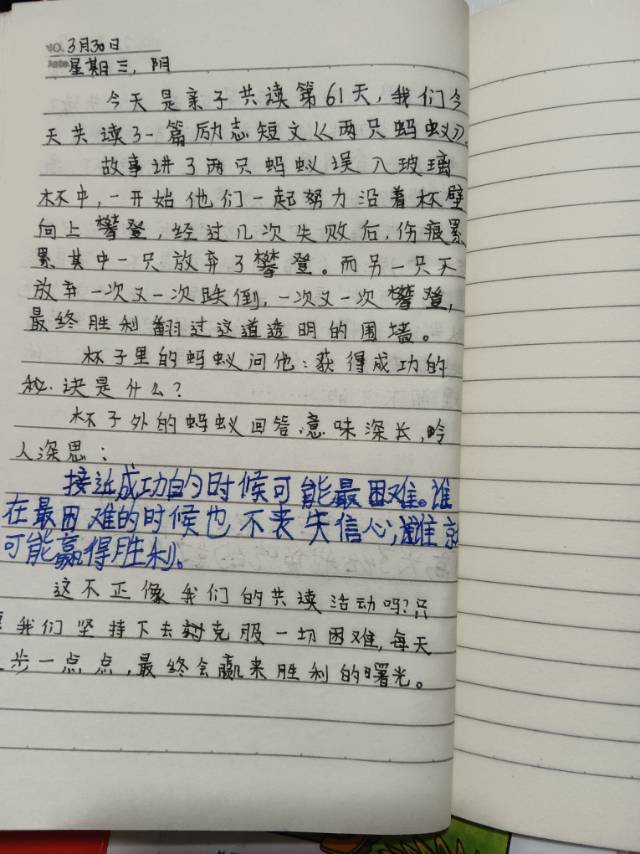 NO. 3月30日
Date 星期三,阴
今天是亲子共读第61天,我们今
天共读了一篇励志短文《两只蚂蚁》。
故事讲了两只蚂蚁误入玻璃
杯中,一开始他们一起努力沿着杯壁
向上攀登,经过几次失败后,伤痕累
累其中一只放弃了攀登。而另一只不
放弃一次又一次跌倒,一次又一次攀登,
最终胜利翻过这道透明的围墙。
杯子里的蚂蚁问他:获得成功的
秘诀是什么?
杯子外的蚂蚁回答意味深长,令
人深思:
接近成功的时候可能最困难。谁
在最困难的时候也不丧失信心,谁就
可能赢得胜利。
这不正像我们的共读活动吗?只
我们坚持下去克服一切困难,每天
步一点点,最终会赢来胜利的曙光。